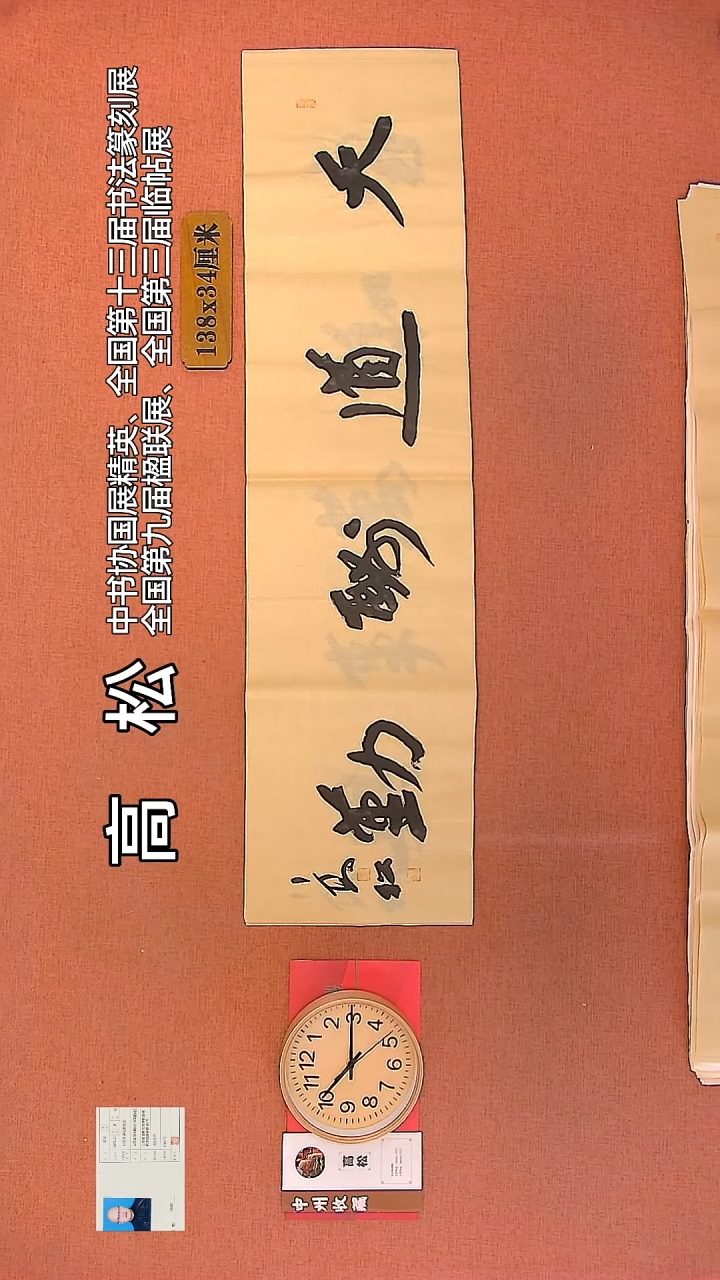 高 松
中书协国展精英、全国第十三届书法篆刻展
全国第九届楹联展、全国第三届临帖展
138x34厘米
天道酬勤
高松
12
1
2
3
4
5
6
7
8
9
10
11
高松
中州收藏